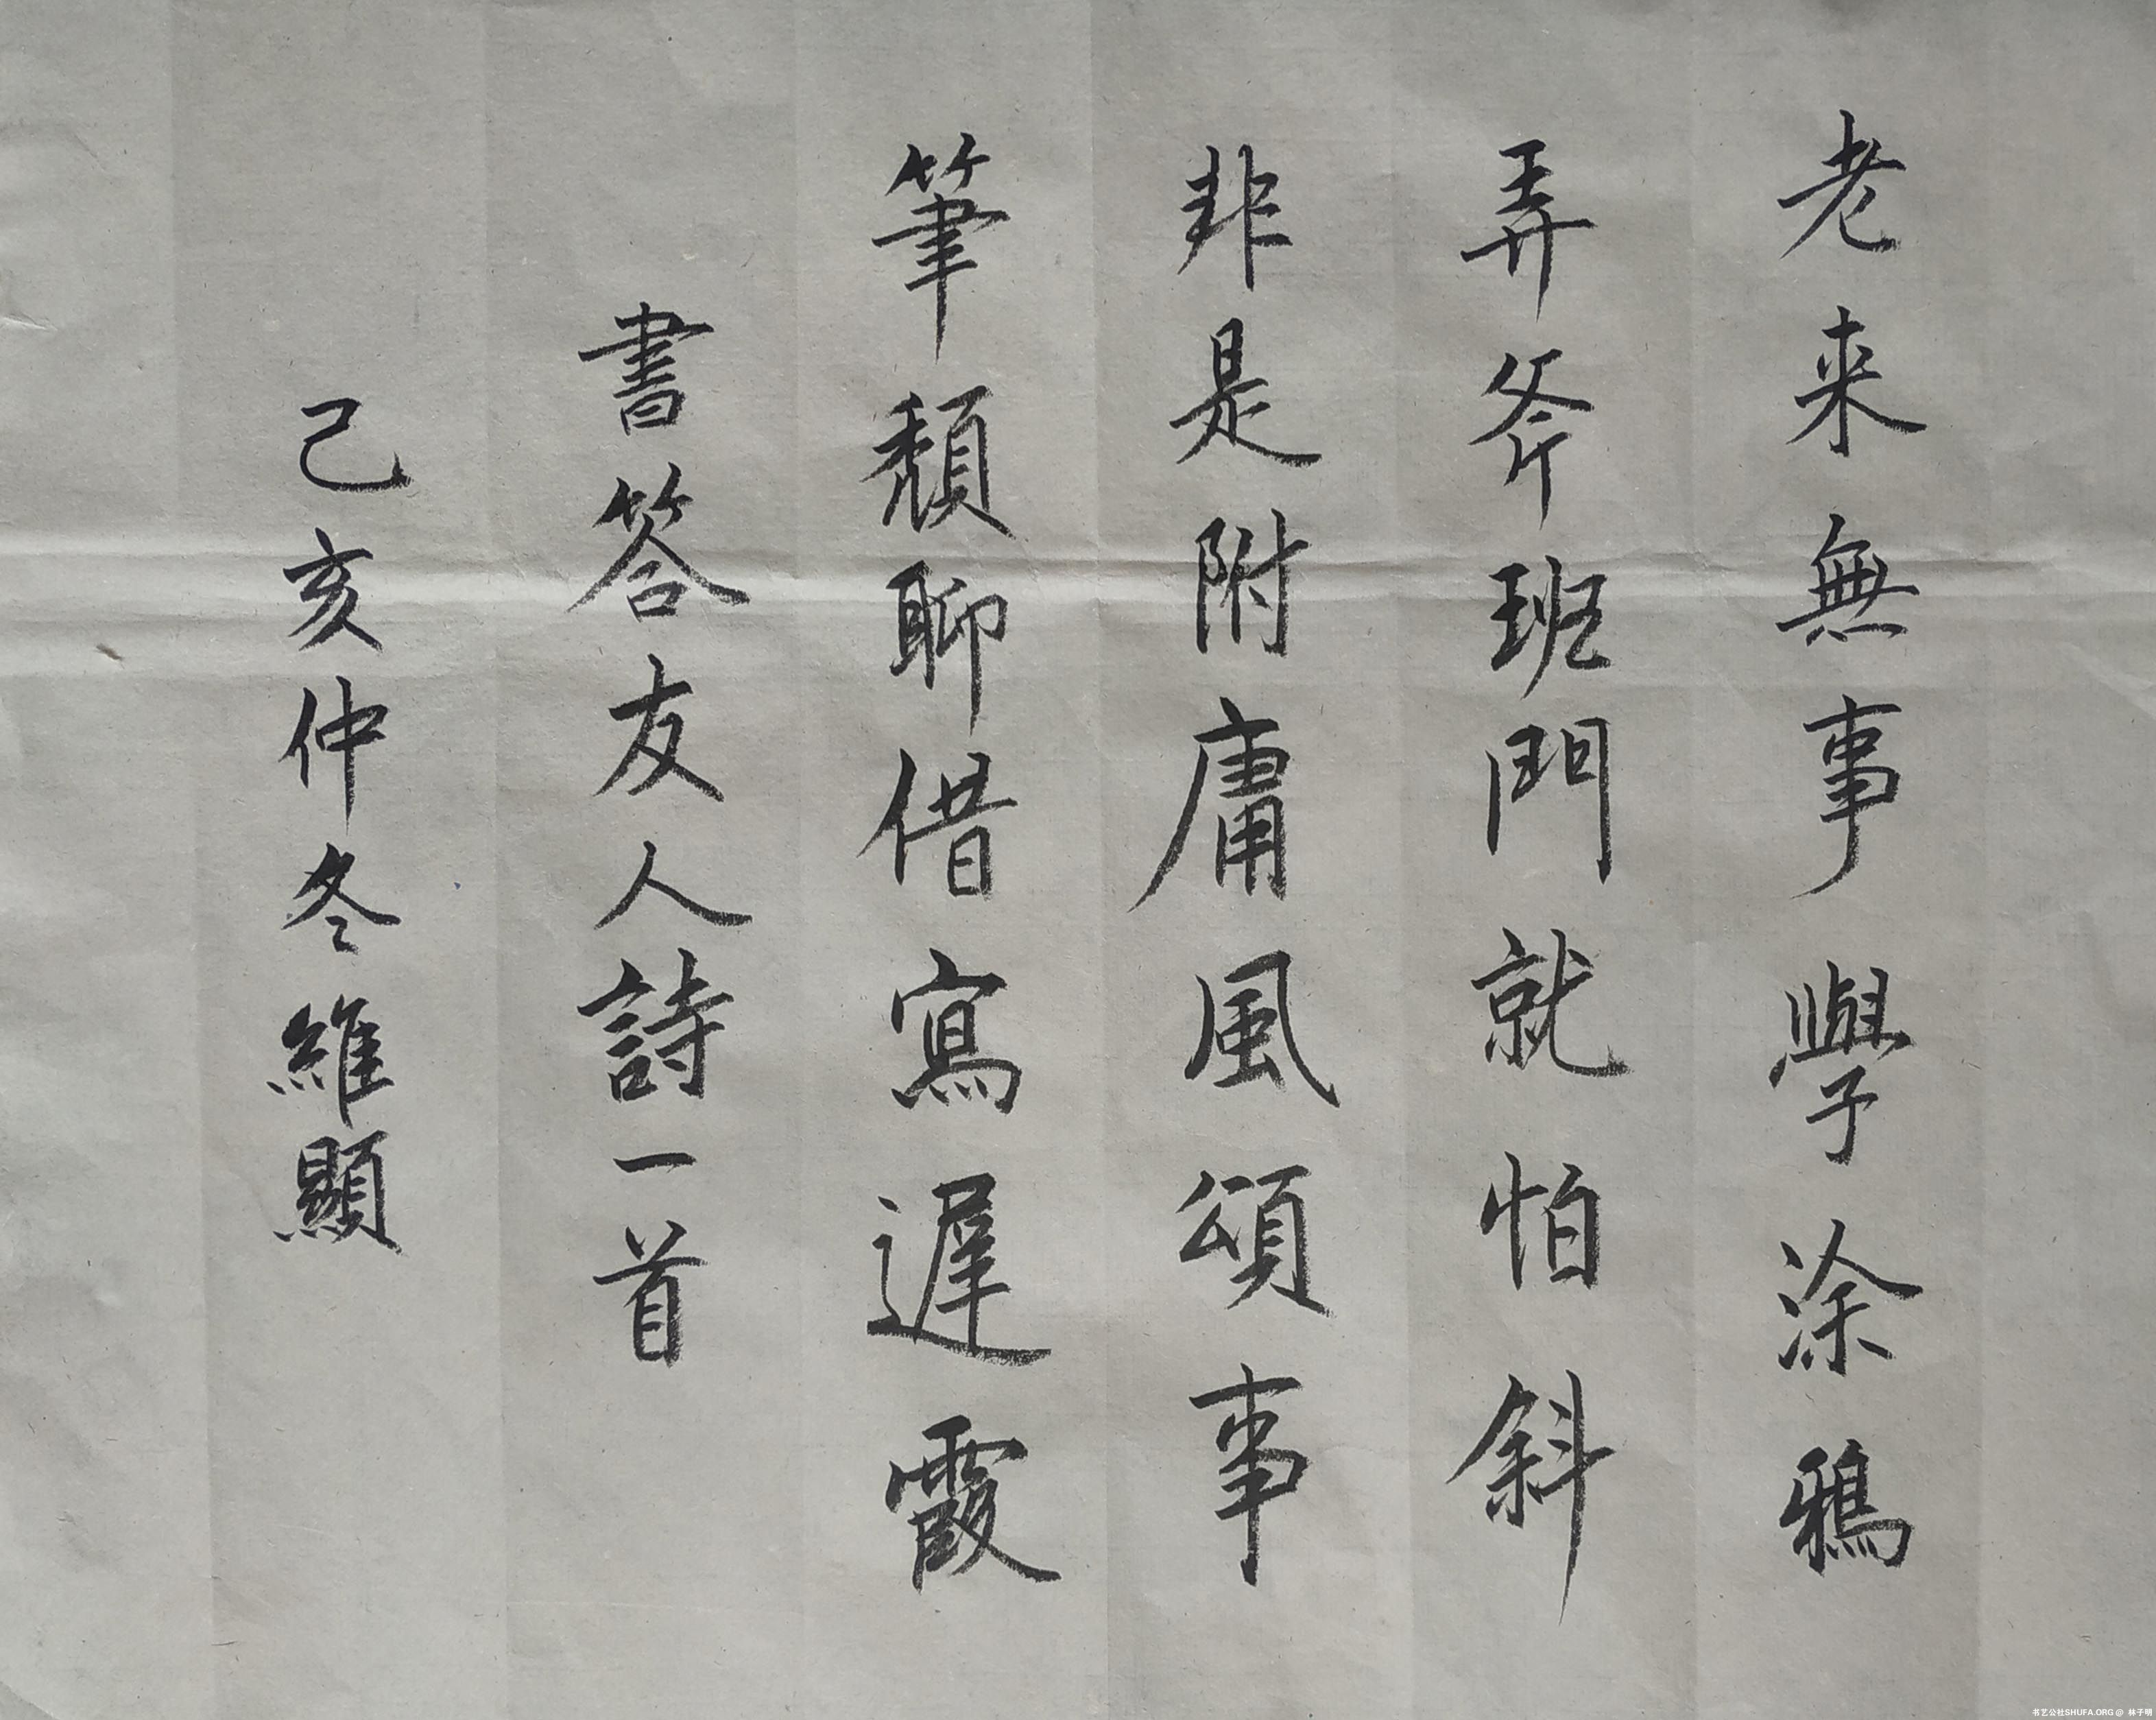 老来無事學涂鴉
弄斧班門就怕斜
非是附庸風頌事
筆頹聊借寫遲霞
書答友人詩一首
己亥仲冬維顯
书艺公社SHUFA.ORG @ 林子明